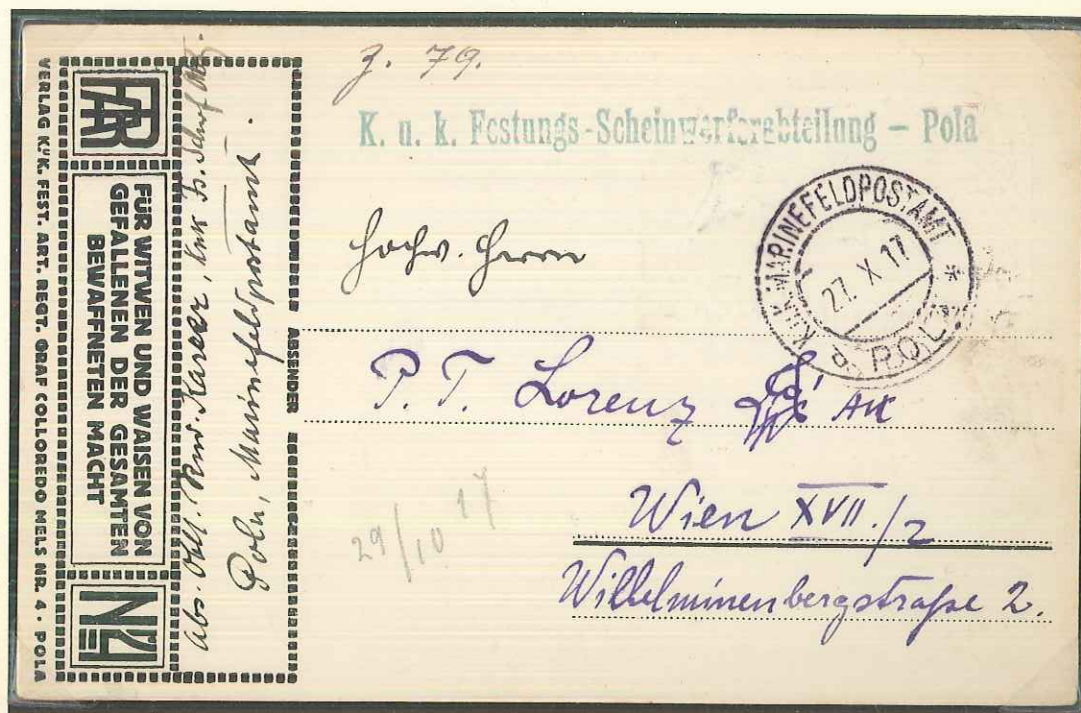 VERLAG K.U.K. FEST. ART. REGT. GRAF COLLOREDO MELS NR. 4 · POLA
FAR
FÜR WITWEN UND WAISEN VON
GEFALLENEN DER GESAMTEN
BEWAFFNETEN MACHT
No 4
Abs.
Pola, Marinefeldpostamt.
ABSENDER
Z. 79.
K. u. k. Festungs-Scheinwerferabteilung – Pola
K.u.K. MARINEFELDPOSTAMT *
27. X. 17
POLA
Hochw. Herrn
P. T. Lorenz
Wien XVII./2
Wilhelminenbergstraße 2.
29/10 17